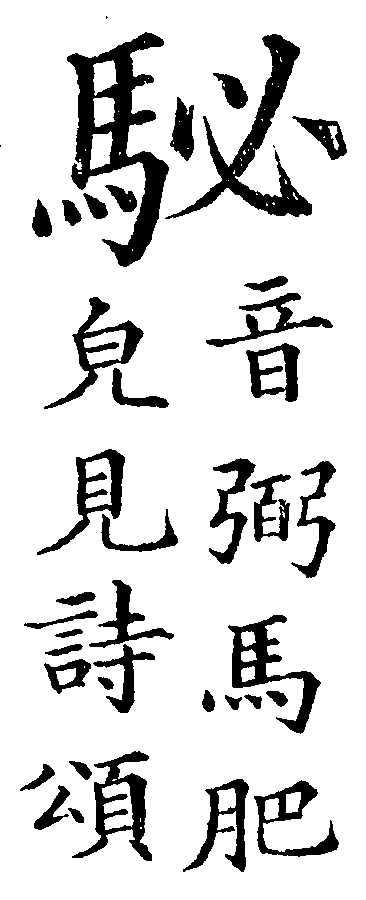 駜
音弼馬肥
皃見詩頌